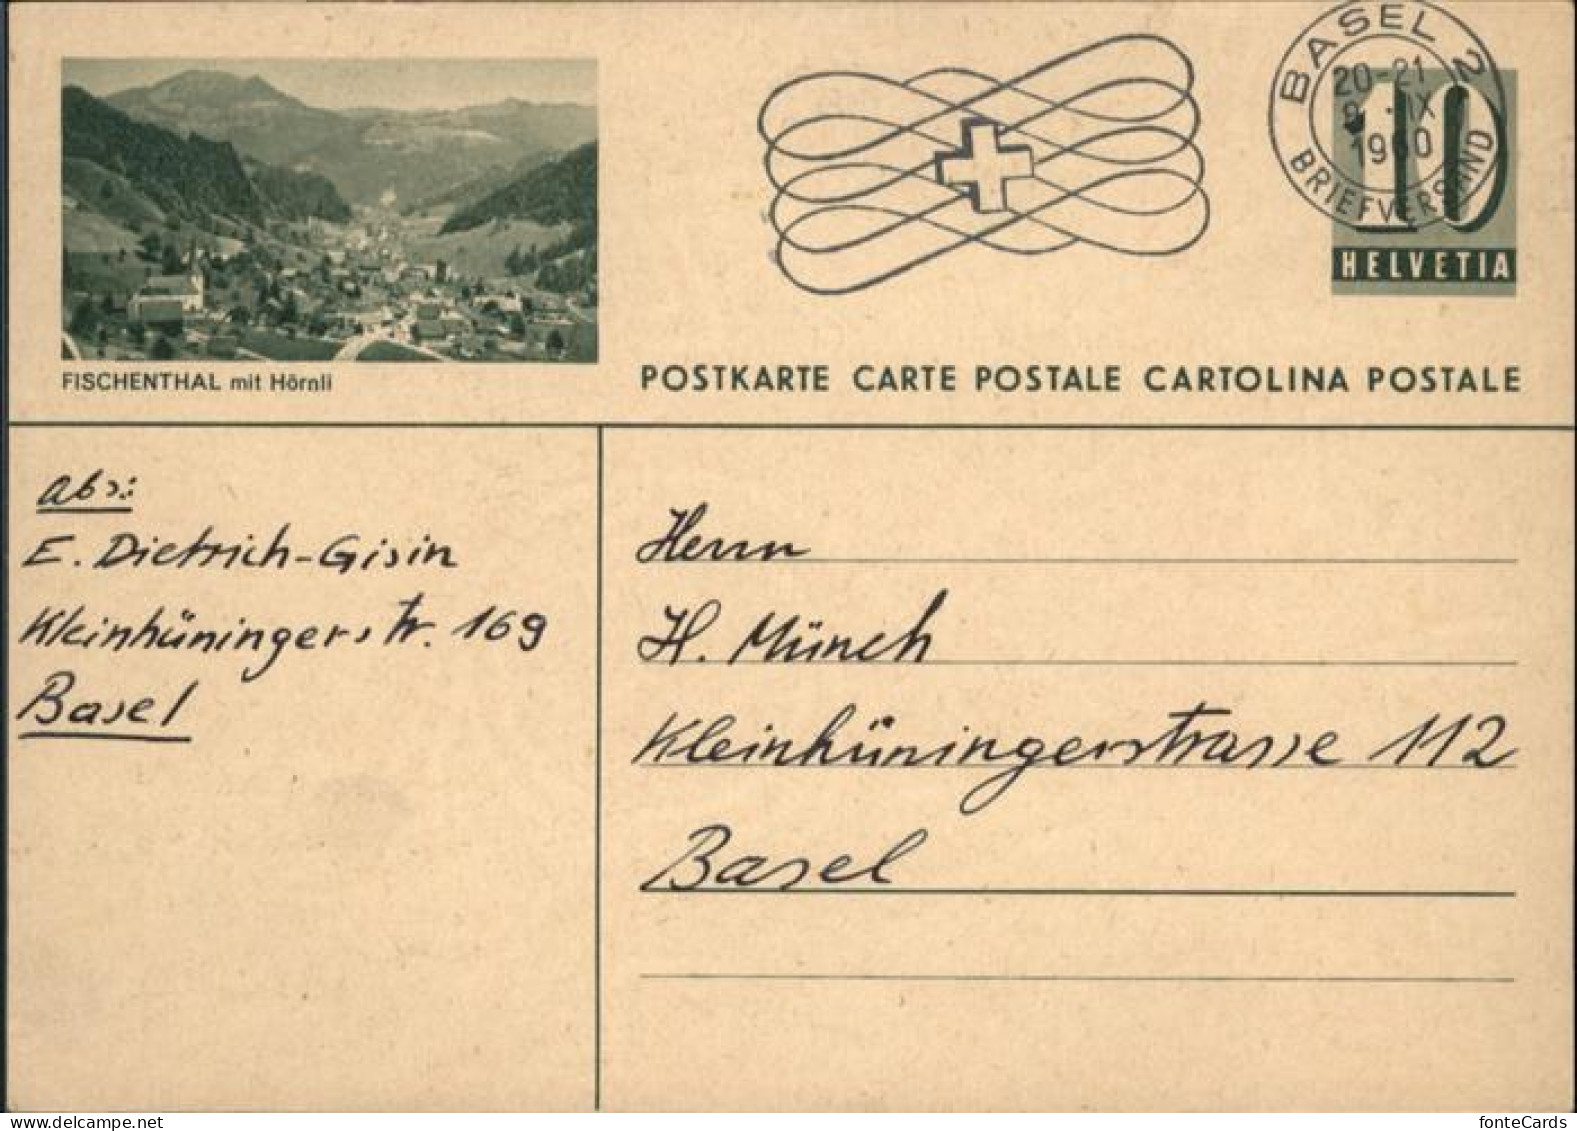 BASEL 2
20-21
9. IX
1960
BRIEFVERSAND
10
HELVETIA
FISCHENTHAL mit Hörnli
POSTKARTE CARTE POSTALE CARTOLINA POSTALE
Abs:
E. Dietrich-Gisin
Kleinhüningerstr. 169
Basel
Herrn
H. Münch
Kleinhüningerstrasse 112
Basel
Copyright © by oldthing
fonteCards